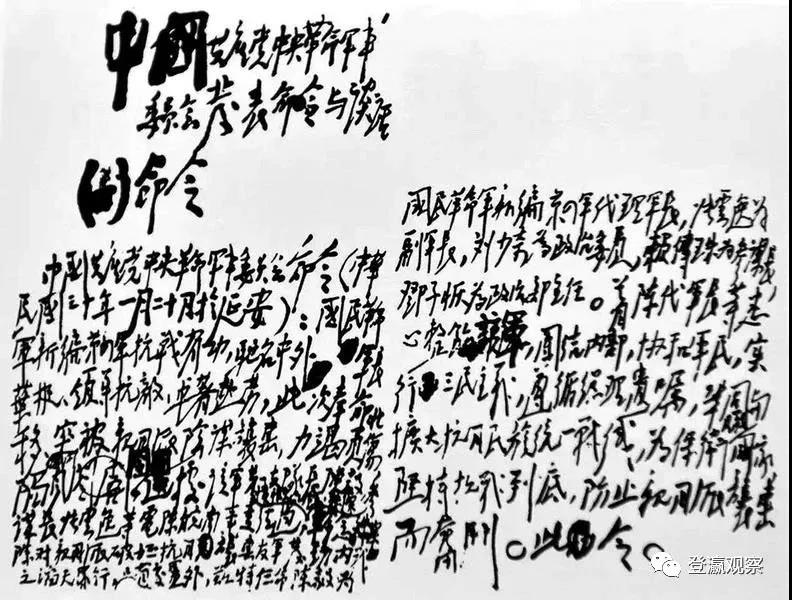 中國共产党中央革命军事
委员会发表命令与谈话
命令
中国共产党中央革命军事委员会命令(中华
民国三十年一月二十日于延安):國民革命
军新编第四军抗战有功,驰名中外。军长
葉挺,领军抗敌,卓著勋劳,此次奉命北
移,突被亲日派阴谋襲击,力竭负伤
陷
谋长张雲逸等電陈皖南事变经过,
除对亲日派破坏抗日
之滔天罪行,另有处置外,兹特任命陈毅为
國民革命军新编第四军代理军长,张雲逸为
副军长,刘少奇为政治委员,赖傅珠为参谋长,
鄧子恢为政治部主任。着陈代军长等悉
心整饬该军,團结内部,协和军民,实
行三民主義,遵循总理遗嘱,巩固与
擴大抗日民族统一战线,为保卫民族国家
坚持抗战到底,防止亲日派襲击
而奋鬥。此令。
登瀛观察